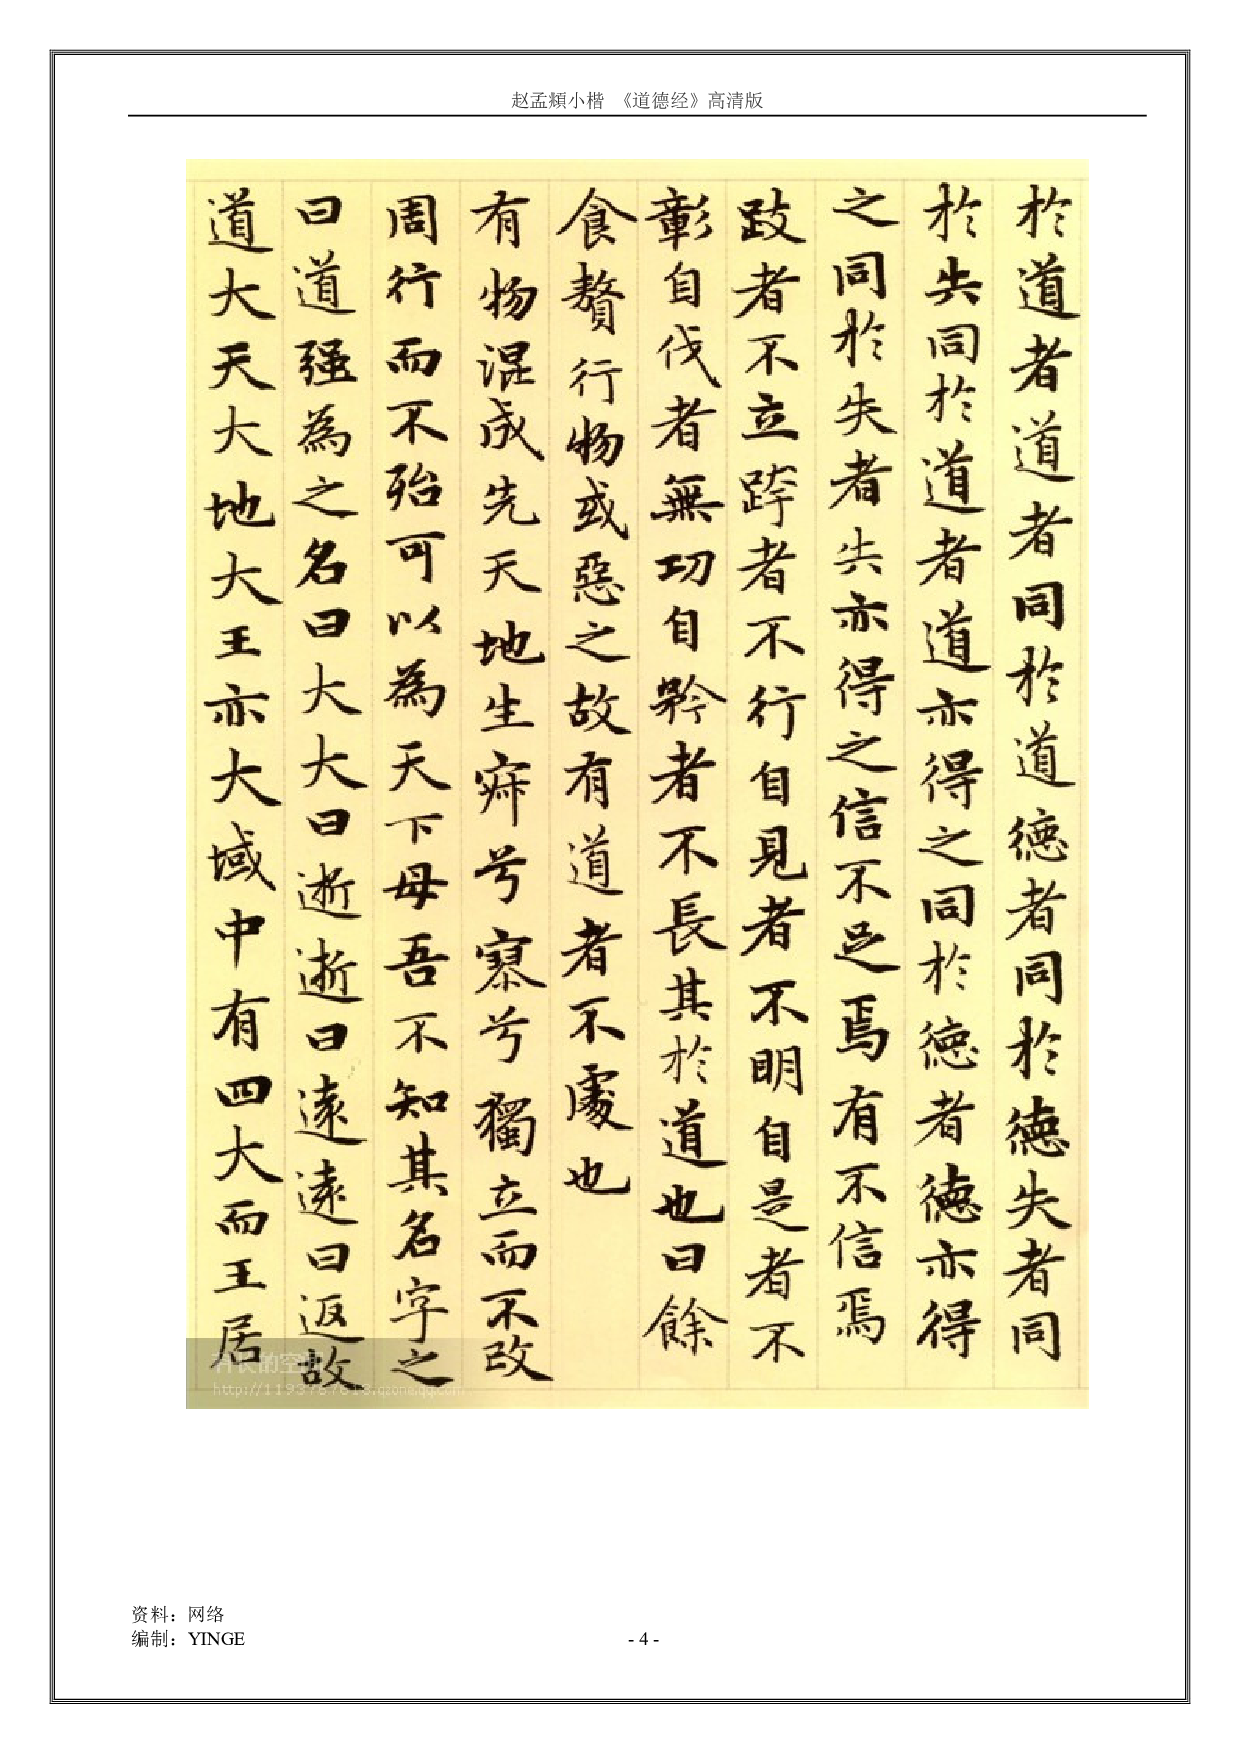 赵孟頫小楷 《道德经》高清版
於道者道者同於道德者同於德失者同
於失同於道者道亦得之同於德者德亦得
之同於失者失亦得之信不足焉有不信焉
跂者不立跨者不行自見者不明自是者不
彰自伐者無功自矜者不長其於道也曰餘
食贅行物或惡之故有道者不處也
有物混成先天地生寂兮寥兮獨立而不改
周行而不殆可以為天下母吾不知其名字之
曰道强為之名曰大大曰逝逝曰遠遠曰返故
道大天大地大王亦大域中有四大而王居
的空间
http://1193767613.qzone.qq.com
资料：网络
编制：YINGE
- 4 -